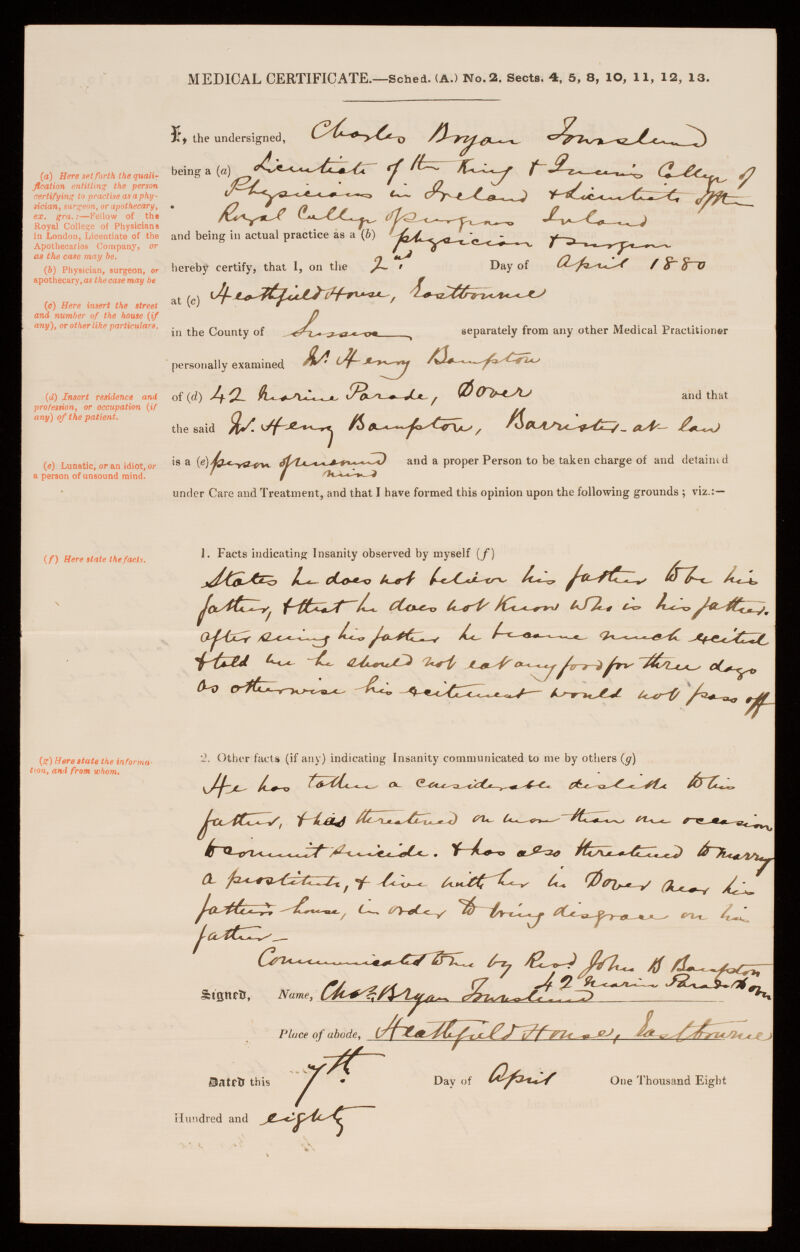 MEDICAL CERTIFICATE.—Sched. (A.) No. 2. Sects. 4, 5, 8, 10, 11, 12, 13.
I, the undersigned, Charles Bryan Townsend
(a) Here set forth the quali-
fication entitling the person
certifying to practise as a phy-
sician, surgeon, or apothecary,
ex. gra.:—Fellow of the
Royal College of Physicians
in London, Licentiate of the
Apothecaries Company, or
as the case may be.
being a (a) Licentiate of the King & Queen's College of
Physicians in Ireland & Licentiate of the
Royal College of Surgeons Ireland
and being in actual practice as a (b) physician & surgeon
(b) Physician, surgeon, or
apothecary, as the case may be
hereby certify, that I, on the 2nd Day of April 1880
(c) Here insert the street
and number of the house (if
any), or other like particulars.
at (c) Heathfield House, Eastbourne
in the County of Sussex, separately from any other Medical Practitioner
personally examined Mr. Henry Bampton
(d) Insert residence and
profession, or occupation (if
any) of the patient.
of (d) 42 Marine Parade, Dover and that
the said Mr. Henry Bampton, Barrister-at-law
(e) Lunatic, or an idiot, or
a person of unsound mind.
is a (e) person of unsound mind and a proper Person to be taken charge of and detained
under Care and Treatment, and that I have formed this opinion upon the following grounds; viz.:—
(f) Here state the facts.
1. Facts indicating Insanity observed by myself (f)
States he does not believe his father to be his
father, & that he does not know who is his father.
After seeing his father he became much excited
& told me he should not eat any food for three days
as otherwise his excitement would not pass off
(g) Here state the informa-
tion, and from whom.
2. Other facts (if any) indicating Insanity communicated to me by others (g)
He has taken a considerable dislike to his
father, & has threatened on more than one occasion
to commit suicide. & has also threatened to marry
a prostitute, & live with her in Dover near his
father's house, in order to bring disgrace on his
father—
Communicated to me by Revd John B Bampton
42 Marine Parade Dover
Signed, Name, Chas. Bryan Townsend
Place of abode, Heathfield House, Eastbourne
Dated this 7th. Day of April One Thousand Eight
Hundred and eighty